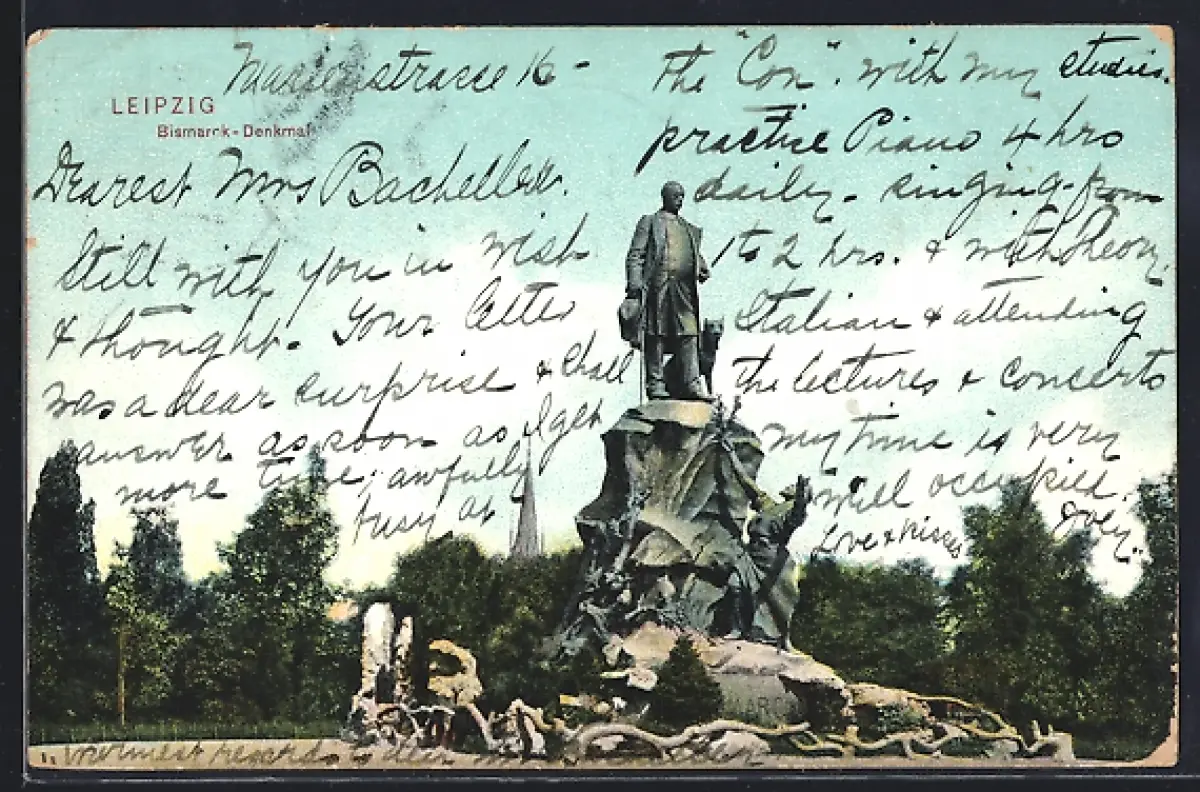 Marienstrasse 16 -
LEIPZIG
Bismarck-Denkmal
Dearest Mrs Bacheller.
Still with you in wish
& thought. Your letter
was a dear surprise & shall
answer as soon as I get
more time, awfully
busy at
the "Con". with my studies.
practise Piano 4 hrs
daily - singing - from
1 to 2 hrs. & with Theory,
Italian & attending
the lectures & concerts
my time is very
well occupied.
Love & kisses
"Warmest regards to